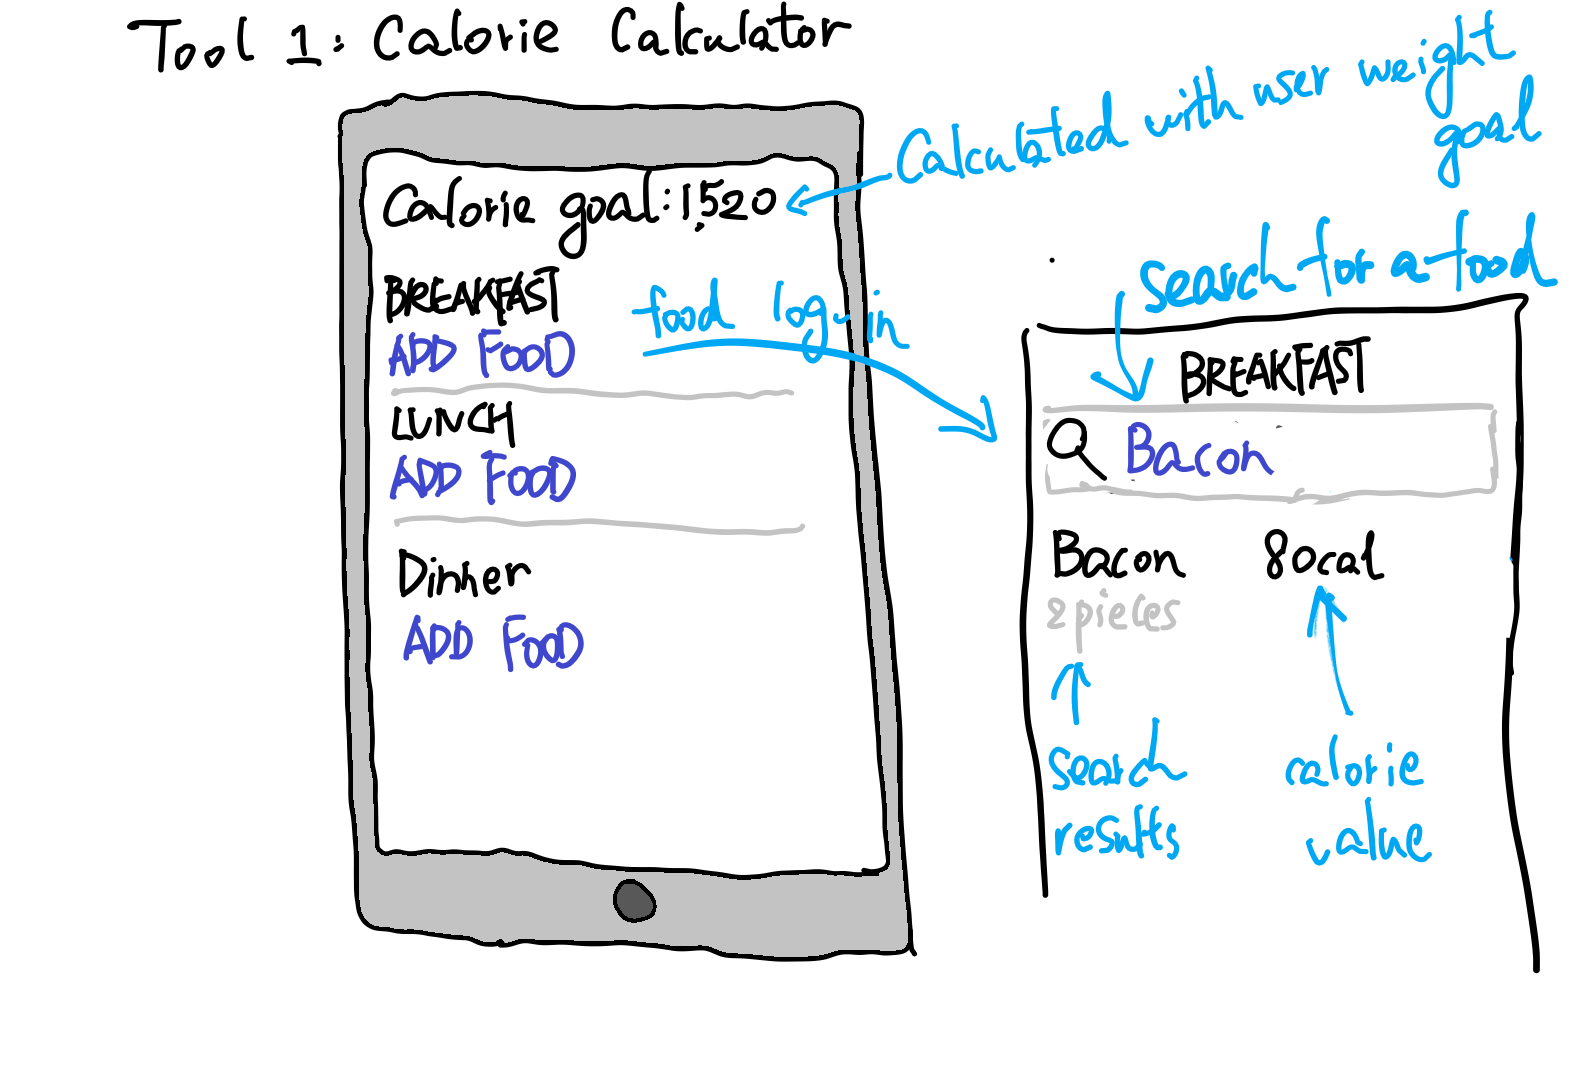 Tool 1: Calorie Calculator
Calculated with user weight
goal
Calorie goal:1,520
BREAKFAST
ADD FOOD
food log-in
LUNCH
ADD FOOD
Dinner
ADD FOOD
search for a food
BREAKFAST
Bacon
Bacon 80cal
2 pieces
search
results
calorie
value